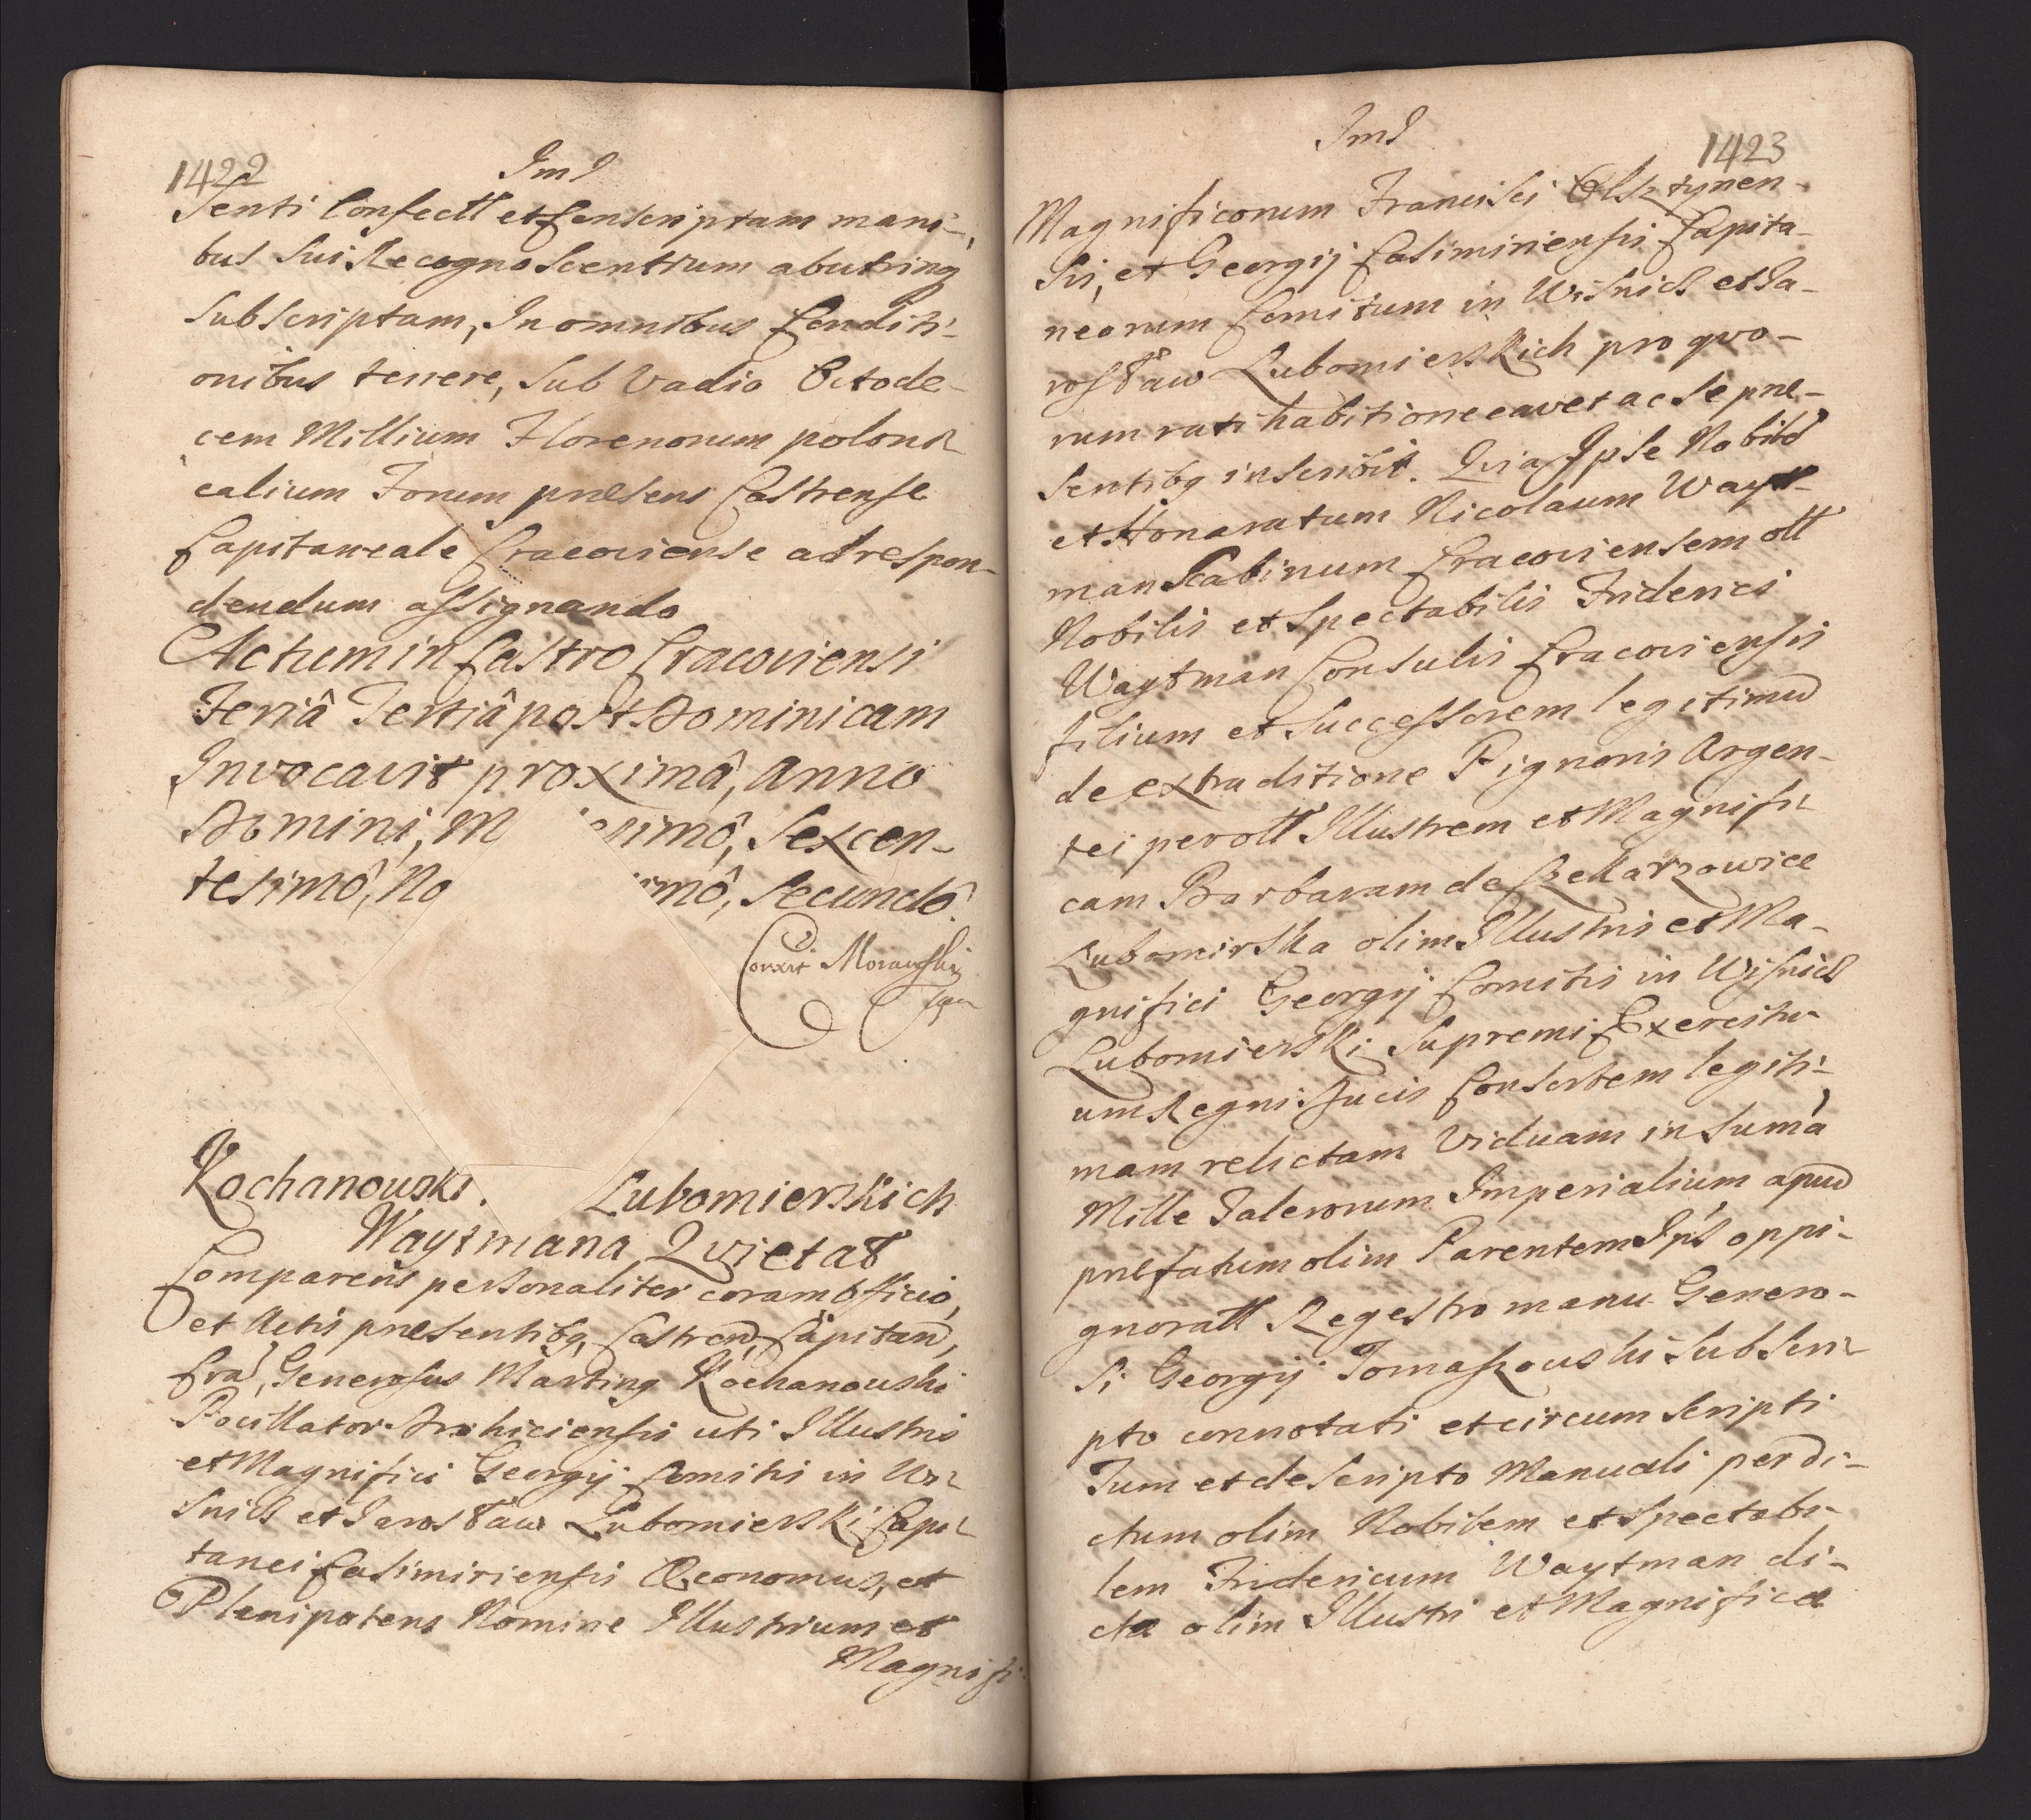 1422
Ind
senti Confectt et Conscriptam mani-
bus sui Recognoscentium abutrinq
subscriptam, In omnibus Conditi-
onibus tenere, sub Vadio Octode-
cem Millium Florenorum poloni-
calium Forum præsens Castrense
Capitaneale Cracoviense ad respon-
dendum assignando
Actum in Castro Cracoviensi
Feriâ Tertiâ post Dominicam
Invocavit proximâ, Anno
Domini, M esimô, Sexcen-
tesimô, No imô, Secundô.
Corxit Morawski
Kochanowski. Lubomierskich
Waytmana Qvietat
Comparens personaliter coram Officio,
et Actis præsentibq, Castren, Capitan,
Cra, Generosus Martinq Kochanowski
Pocillator Drohiciensis uti Illustris
et Magnifici Georgij Comitis in Wi-
snicz et Jarosław Lubomierski Capi-
tanei Casimiriensis Œconomus, et
Plenipotens Nomine Illustrium et
Magnifi-
Ind
1423
Magnificorum Francisci Olsztynen-
sis, et Georgij Casimiriensis Capita-
neorum Comitum in Wisnicz et Ja-
rosław Lubomierskich pro qvo-
rum rati habitione cavet ac se præ-
sentibq inscribit. Qvia Ipse Nobild
et Honoratum Nicolaum Wayt-
man Scabinum Cracoviensem ott
Nobilis et Spectabilis Friderici
Waytman Consulis Cracoviensis
filium et Successorem legitimu
de extraditione Pignoris Argen-
tei per ott Illustrem et Magnifi-
cam Barbaram de
Lubomirska olim Illustris et Ma-
gnifici Georgij Comitis in Wisnicz
Lubomierski Supremi Exercitu-
um Regni Ducis Consortem legiti-
mam relictam Viduam in Suma
Mille Talerorum Imperialium apud
præfatum olim Parentem Ips oppi-
gnoratt Regestro manu Genero-
si Georgij Tomaszowski subscri-
pto connotati et circumscripti
Tum et de Scripto Manuali per di-
ctum olim Nobilem et Spectabi-
lem Fridericum Waytman di-
ctæ olim Illustri et Magnificæ